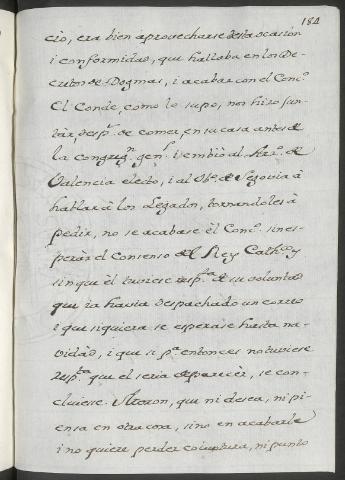 184
cio, era bien aprovecharse desta ocasión
i conformidad, que hallaba en los De-
cretos de Dogmas, i acabar con el Conc.º
El Conde, como lo supo, nos hizo jun-
tar, desp.s de comer, en su casa antes de
la congreg.n gen.l i embiò al Arz.º de
Valencia electo, i al Ob.º de Segovia à
hablar à los Legados, tornandoles à
pedir, no se acabase èl Conc.º sin es-
perar el Consenso del Rey Cath.co y
sin que èl tuviese resp.ta de su voluntad
que ia havia despachado un correo
i que siquiera se esperase hasta na-
vidad, i que si p.a entonces no tuviese
resp.ta que el seria de parecèr, se con-
cluiese. que ni desea, ni pi-
ensa en otra cosa, sino en acabarle
i no quiere perder coiuntura, ni punto